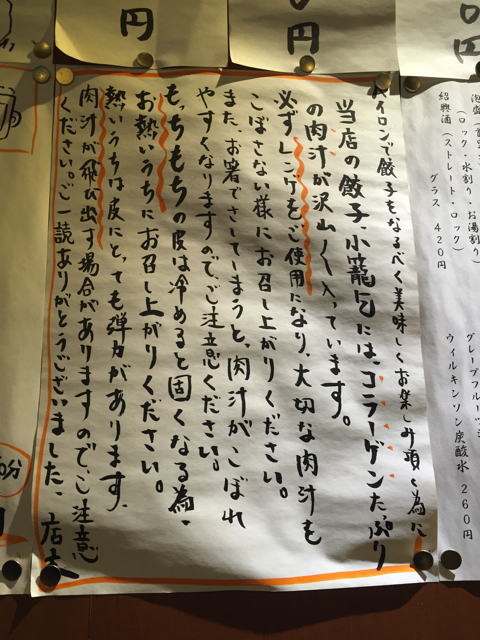 円
円
円
泡盛
（ロック・水割り・お湯割り）
紹興酒（ストレート・ロック）
グラス 420円
グレープフルーツ
ウィルキンソン炭酸水 260円
パイロンで餃子をなるべく美味しくお楽しみ頂く為に
当店の餃子、小籠包には、コラーゲンたっぷり
の肉汁が沢山入っています。
必ずレンゲをご使用になり、大切な肉汁も
こぼさない様にお召し上がりください。
また、お箸でさしてしまうと、肉汁がこぼれ
やすくなりますので、ご注意ください。
もっちもちの皮は冷めると固くなる為、
お熱いうちにお召し上がりください。
熱いうちは皮にとっても弾力があります、
肉汁が飛び出す場合がありますので、ご注意
ください。ご一読ありがとうございました、店主